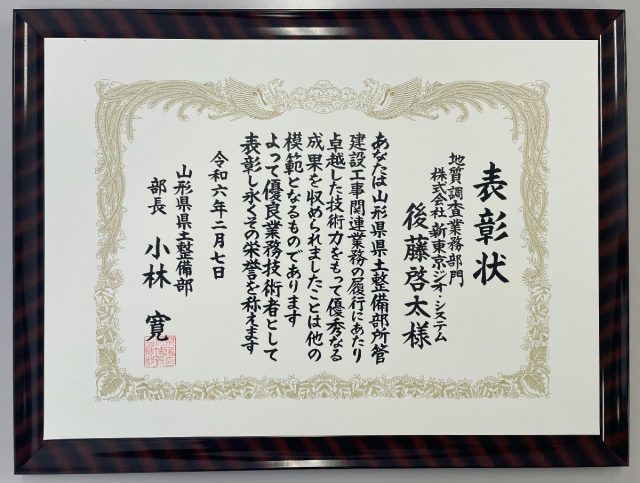 表彰状
地質調査業務部門
株式会社 新東京ジオ・システム
後藤啓太様
あなたは山形県県土整備部所管
建設工事関連業務の履行にあたり
卓越した技術力をもって優秀なる
成果を収められましたことは他の
模範となるものであります
よって優良業務技術者として
表彰し永くその栄誉を称えます
令和六年二月七日
山形県県土整備部
部長 小林 寛